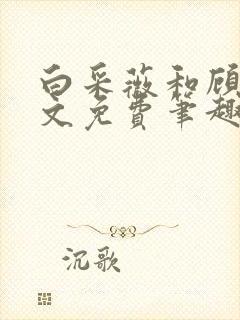 白采薇和顾
文免费笔趣
沉歌